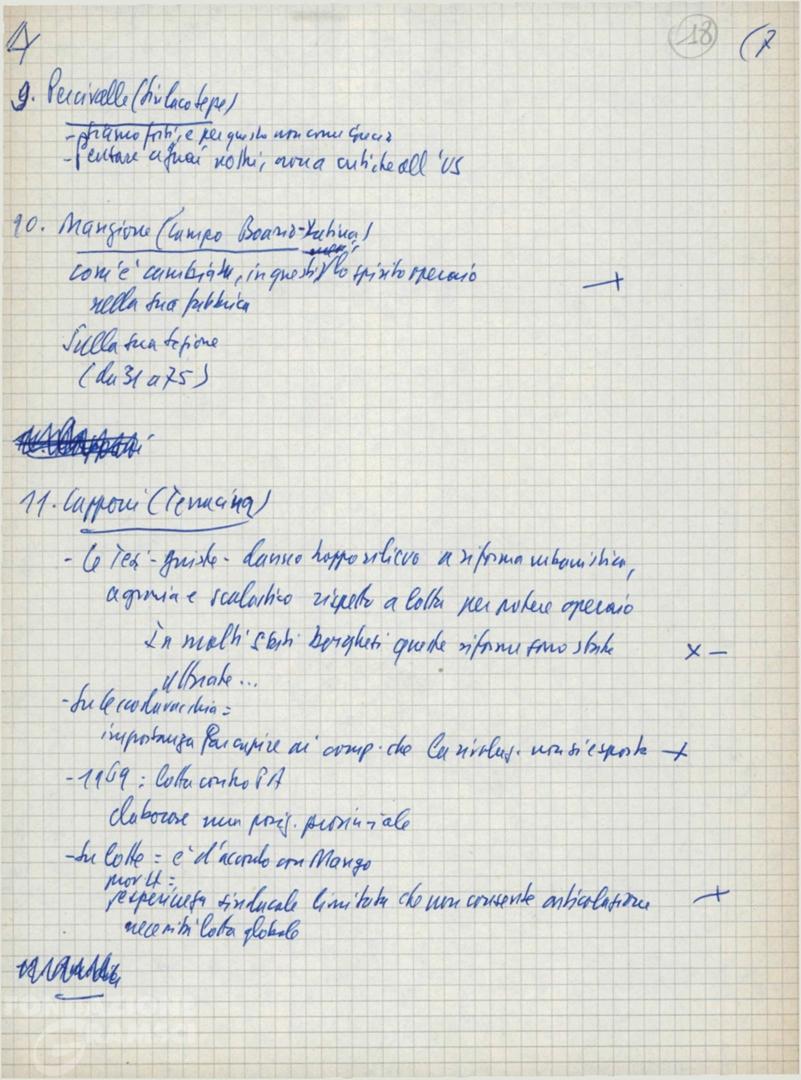 18 (7
9. Percivalle (
- siamo forti, e per questo non
- guai nostri, critiche all'US
10. Mangione (Campo Boario-Latina)
com'è cambiato, in questi anni, lo spirito operaio +
nella sua fabbrica
Sulla sua sezione
(da 31 a 75)
11. Capponi (Terracina)
- Le Tesi - giuste - danno troppo rilievo a riforma urbanistica,
agraria e scolastica rispetto a lotta per potere operaio
In molti stati borghesi queste riforme sono state x –
attuate...
- Su Cecoslovacchia =
importanza far capire ai comp. che la rivoluz. non si esporta +
- 1969: lotta contro
elaborare una posiz. provinciale
- Su lotte = è d'accordo con Mango
esperienza sindacale limitata che non consente articolazione +
necessità lotta globale
FONDAZIONE
GRAMSCI